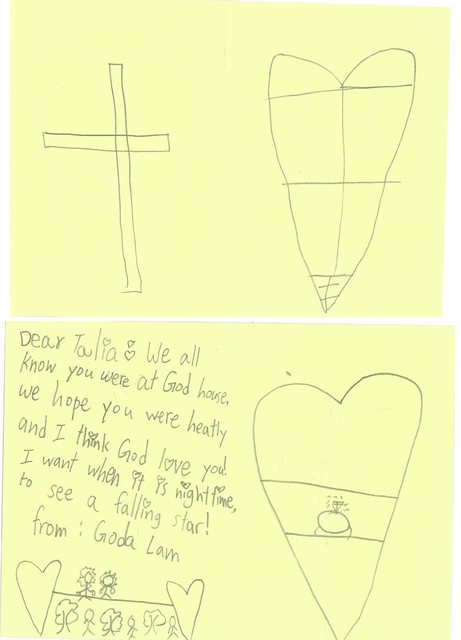 Dear Talia: We all
know you were at God house,
we hope you were heatly
and I think God love you!
I want when it is nighttime,
to see a falling star!
from: Goda Lam